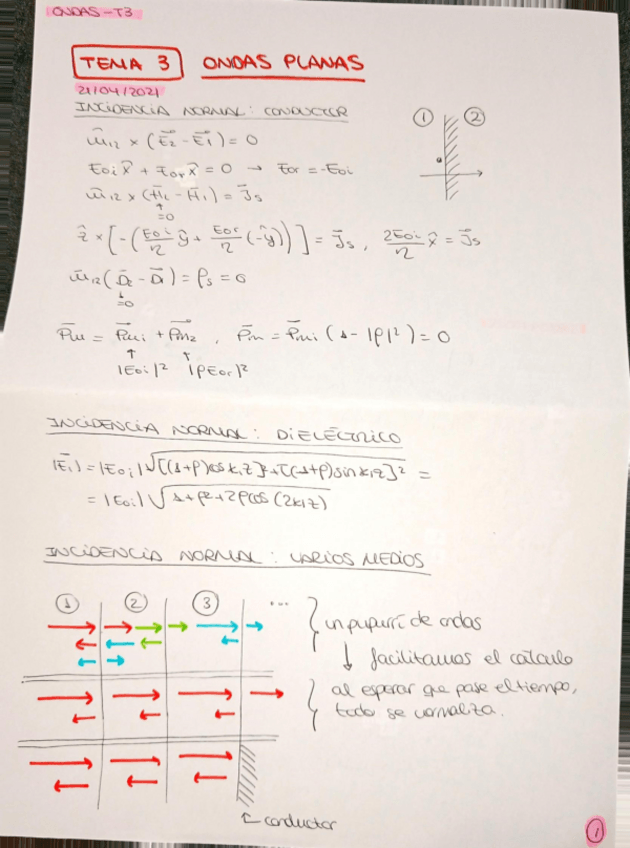 ONDAS-T3
TEMA 3 ONDAS PLANAS
21/04/2021
INCIDENCIA NORMAL: CONDUCTOR
① ②
n̂₁₂ × (E⃗₂ - E⃗₁) = 0
E₀ᵢ x̂ + E₀ᵣ x̂ = 0 → E₀ᵣ = -E₀ᵢ
n̂₁₂ × (H̄₂ - H̄₁) = J̄s
↑
=0
ẑ × [-(E₀ᵢ/η ŷ + E₀ᵣ/η (-ŷ))] = J̄s, 2E₀ᵢ/η x̂ = J̄s
n̂₁₂ (D̄₂ - D̄₁) = ρs = 0
↓
=0
|E₀ᵢ|² |ρE₀ᵣ|²
INCIDENCIA NORMAL: DIELÉCTRICO
|Ē₁| = |E₀ᵢ| √[(1+ρ)cos k₁z]² + [(-1+ρ)sin k₁z]² =
= |E₀ᵢ| √1+ρ²+2ρcos(2k₁z)
INCIDENCIA NORMAL: VARIOS MEDIOS
① ② ③ ...
un pupurrí de ondas
↓ facilitamos el cálculo
al esperar que pase el tiempo,
todo se normaliza.
← conductor
1